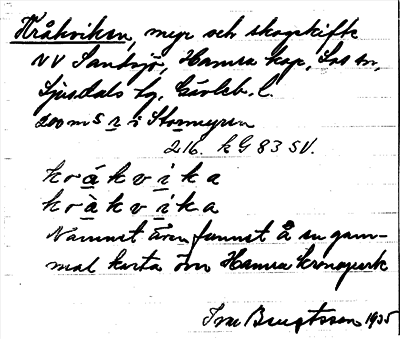 Kråkviken, myr och skogskifte
NV Santsjö, Hamra kap, Los sn,
Ljusdals tg. Gävleb. l.
200 m S r i Stormyren
216. kG 83 SV.
krákvika
kràkvika
Namnet även funnet å en gam-
mal karta öm Hamra kronopark
Bengtsson 1935